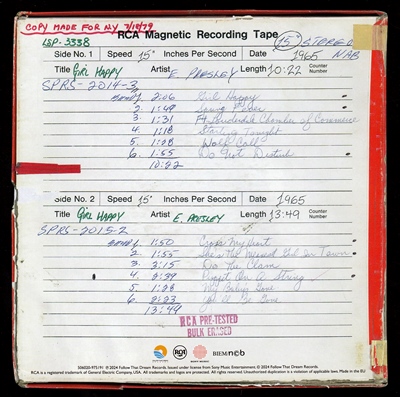 COPY MADE FOR N.Y 7/10/79
RCA Magnetic Recording Tape
LSP-3338
15" STEREO
NAB
Side No. 1 Speed 15" Inches Per Second Date 1965
Title Girl Happy Artist E. PRESLEY Length 10:22 Counter Number
SPRS-2014-3
1. 2:06 Girl Happy
2. 1:49 Spring Fever
3. 1:31 Ft Lauderdale Chamber of Commerce
4. 1:18 Startin Tonight
5. 1:28 Wolf Call
6. 1:55 Do Not Disturb
10:22
Side No. 2 Speed 15" Inches Per Second Date 1965
Title Girl Happy Artist E. PRESLEY Length 13:49 Counter Number
SPRS-2015-2
1. 1:50 Cross My Heart
2. 1:55 She's The Meanest Girl In Town
3. 3:15 Do The Clam
4. 2:39 Puppet On A String
5. 1:28 My Baby's Gone
6. 2:23 You'll Be Gone
13:49
RCA PRE-TESTED
BULK ERASED
RCA BIEM/n©b
506020-975191 ℗ 2024 Follow That Dream Records. Issued under license from Sony Music Entertainment. © 2024 Follow That Dream Records.
RCA is a registered trademark of General Electric Company, USA. All trademarks and logos are protected. All rights reserved. Unauthorized duplication is a violation of applicable laws. Made in the EU